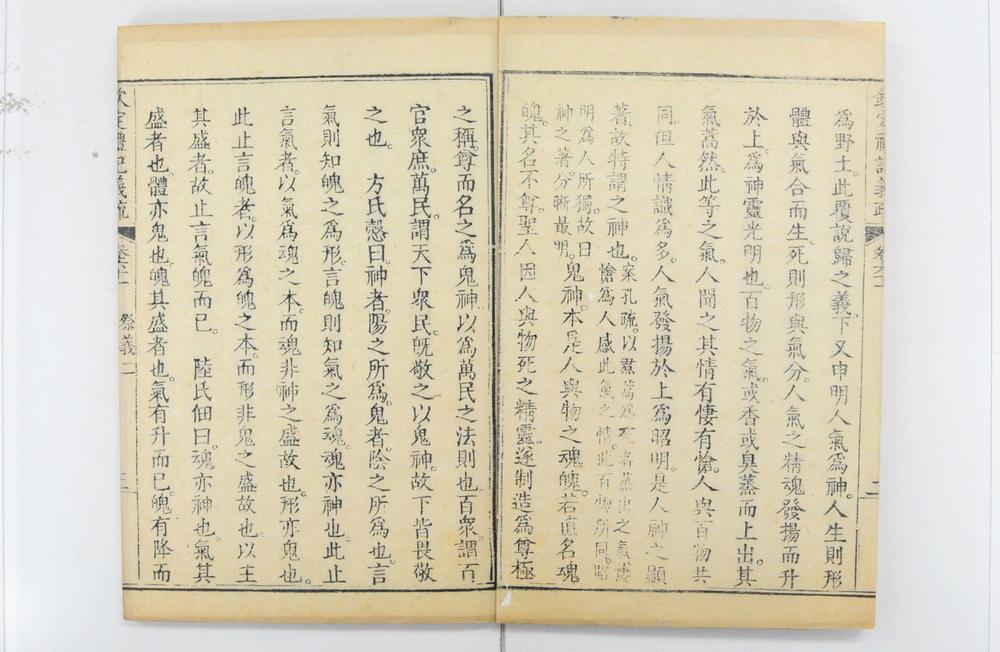 爲野土。此覆說歸之義。下又申明人氣爲神。人生則形
體與氣合而生。死則形與氣分。人氣之精魂發揚而升
於上。爲神靈光明也。百物之氣。或香或臭。蒸而上出。其
氣蒿然。此等之氣。人聞之。其情有悽有愴。人與百物共
同。但人情識爲多。人氣發揚於上爲昭明。是人神之顯
著。故特謂之神也。
案孔疏。以焄蒿爲死者蒸出之氣。悽
愴爲人感此氣之情。此百物所同。昭
明爲人所獨。故曰
神之著。分晰最明。
鬼神本是人與物之魂魄。若直名魂
魄。其名不尊。聖人因人與物死之精靈。遂制造爲尊極
之稱。尊而名之爲鬼神。以爲萬民之法則也。百衆。謂百
官衆庶。萬民。謂天下衆民。旣敬之以鬼神。故下皆畏敬
之也。 方氏慤曰。神者。陽之所爲。鬼者。陰之所爲也。言
氣則知魄之爲形。言魄則知氣之爲魂。魂亦神也。此止
言氣者。以氣爲魂之本。而魂非神之盛故也。形亦鬼也。
此止言魄者。以形爲魄之本。而形非鬼之盛故也。以主
其盛者。故止言氣魄而已。 陸氏佃曰。魂亦神也。氣其
盛者也。體亦鬼也。魄其盛者也。氣有升而已。魄有降而
欽定禮記義疏
祭義二
三